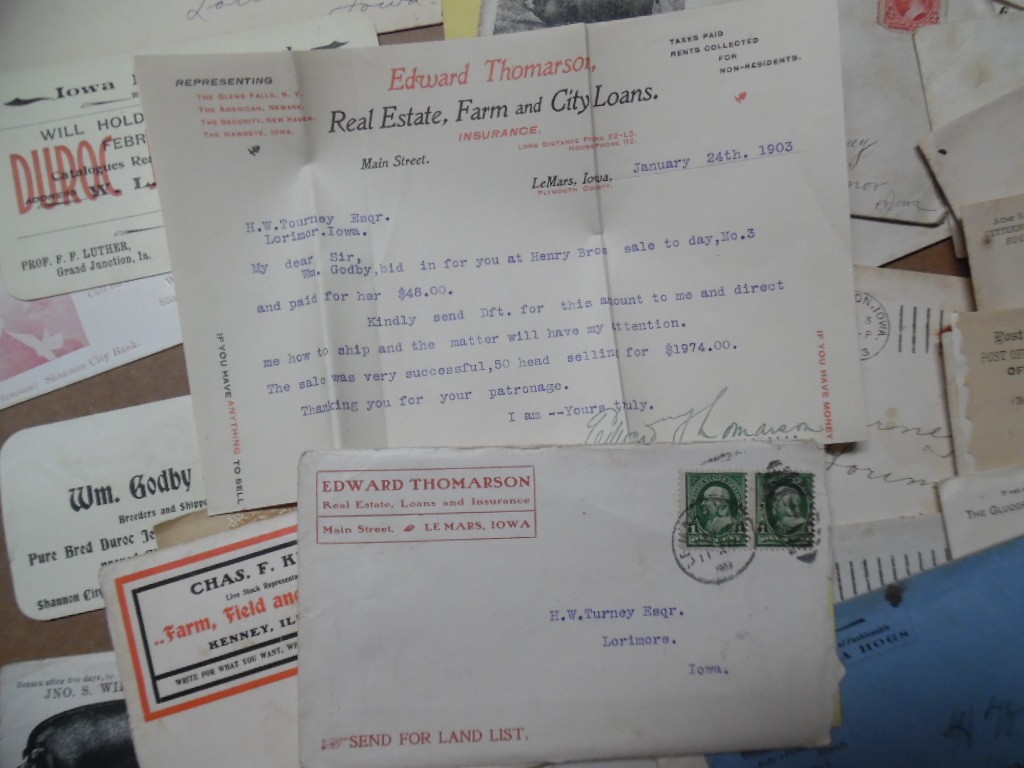 Iowa
WILL HOLD
FEBR
DUROC
Catalogues
ADDRESS W. L
PROF. F. F. LUTHER,
Grand Junction, Ia.
Shannon City Bank.
REPRESENTING
THE GLENS FALLS, N. Y.
THE AMERICAN, NEWARK.
THE SECURITY, NEW HAVEN.
THE HAWKEYE, IOWA.
Edward Thomarson,
Real Estate, Farm and City Loans.
INSURANCE.
LONG DISTANCE PHONE 22-L3.
HOUSEPHONE 112.
TAXES PAID
RENTS COLLECTED
FOR
NON-RESIDENTS.
Main Street.
LeMars, Iowa,
PLYMOUTH COUNTY.
January 24th. 1903
H.W.Tourney Esqr.
Lorimor.Iowa.
My dear Sir,
Wm. Godby,bid in for you at Henry Bros sale to day,No.3
and paid for her $48.00.
Kindly send Dft. for this amount to me and direct
me how to ship and the matter will have my attention.
The sale was very successful,50 head selling for $1974.00.
Thanking you for your patronage.
I am --Yours truly.
Edward Thomarson
IF YOU HAVE ANYTHING TO SELL
IF YOU HAVE MONEY
Wm. Godby
Breeders and Shippe
Pure Bred Duroc Je
Shannon City
CHAS. F. K
Live Stock Representa
..Farm, Field and
KENNEY, ILL
WRITE FOR WHAT YOU WANT, WH
Return after five days, to
JNO. S. WI
EDWARD THOMARSON
Real Estate, Loans and Insurance
Main Street, LE MARS, IOWA
1903
H.W.Turney Esqr.
Lorimore.
Iowa.
SEND FOR LAND LIST.
Iowa
ON, IOWA.
Post
POST OF
OF
THE GLUCO
HOGS